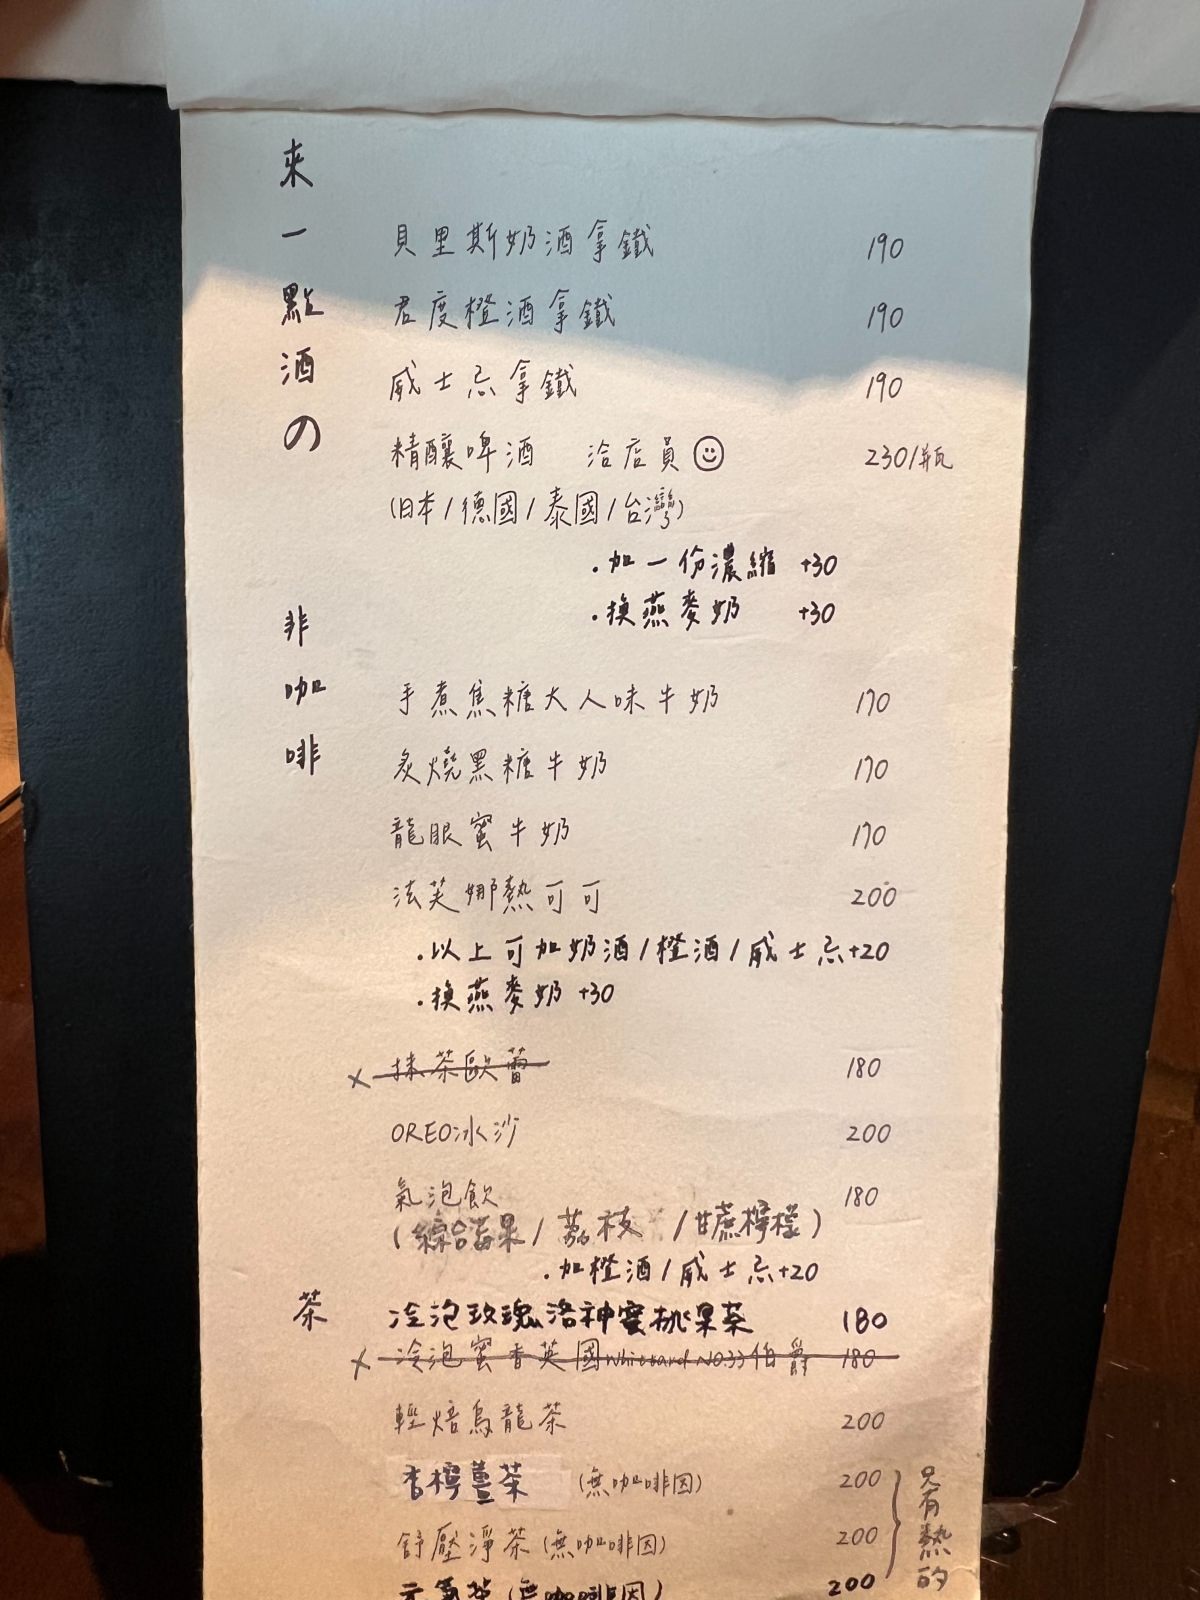 來一點酒の
貝里斯奶酒拿鐵 190
君度橙酒拿鐵 190
威士忌拿鐵 190
精釀啤酒 洽店員 230/瓶
(日本/德國/泰國/台灣)
·加一份濃縮 +30
·換燕麥奶 +30
非咖啡
手煮焦糖大人味牛奶 170
炙燒黑糖牛奶 170
龍眼蜜牛奶 170
法芙娜熱可可 200
·以上可加奶酒/橙酒/威士忌+20
·換燕麥奶 +30
x 抹茶歐蕾 180
OREO冰沙 200
氣泡飲 180
(綜合莓果/荔枝/甘蔗檸檬)
·加橙酒/威士忌+20
茶
冷泡玫瑰洛神蜜桃果茶 180
x 冷泡蜜香英國Whittard NO.33伯爵 180
輕焙烏龍茶 200
香檸薑茶 (無咖啡因) 200
舒壓淨茶(無咖啡因) 200
元氣茶(無咖啡因) 200
只有熱的